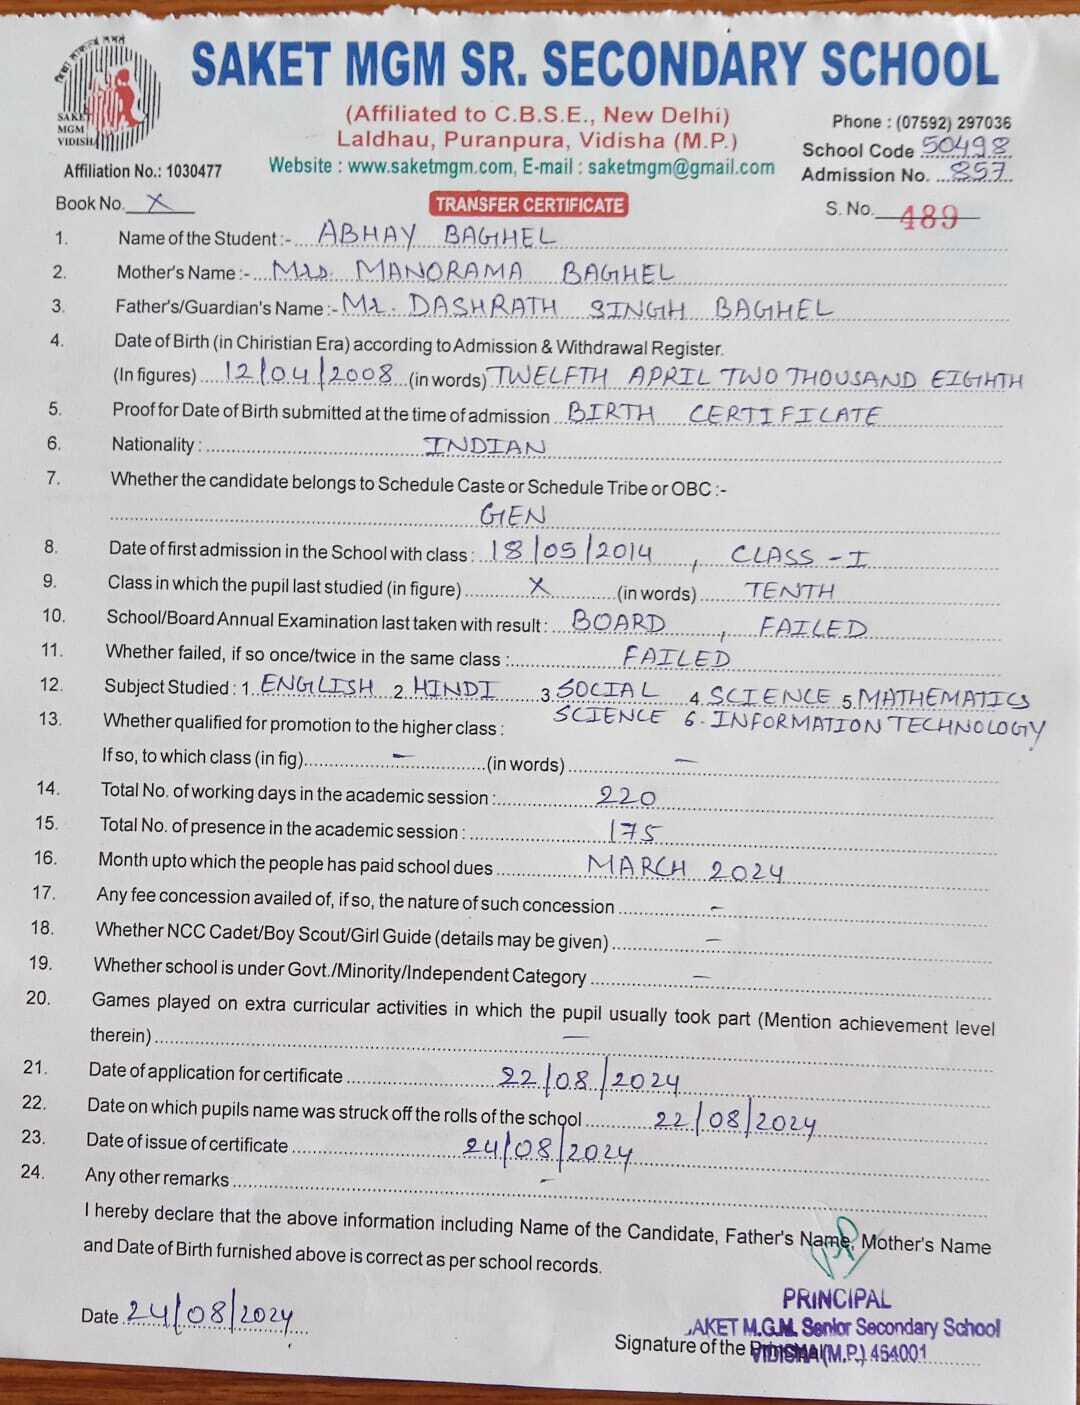 SAKET MGM SR. SECONDARY SCHOOL
SAKET
MGM
VIDISHA
(Affiliated to C.B.S.E., New Delhi)
Laldhau, Puranpura, Vidisha (M.P.)
Phone : (07592) 297036
School Code 50498
Affiliation No.: 1030477
Website : www.saketmgm.com, E-mail : saketmgm@gmail.com
Admission No. 857
Book No. X
TRANSFER CERTIFICATE
S. No. 489
1. Name of the Student :- ABHAY BAGHEL
2. Mother's Name :- Mrs. MANORAMA BAGHEL
3. Father's/Guardian's Name :- Mr. DASHRATH SINGH BAGHEL
4. Date of Birth (in Chiristian Era) according to Admission & Withdrawal Register.
(In figures) 12/04/2008 (in words) TWELFTH APRIL TWO THOUSAND EIGHTH
5. Proof for Date of Birth submitted at the time of admission BIRTH CERTIFICATE
6. Nationality : INDIAN
7. Whether the candidate belongs to Schedule Caste or Schedule Tribe or OBC :-
GEN
8. Date of first admission in the School with class : 18/05/2014, CLASS - I
9. Class in which the pupil last studied (in figure) X (in words) TENTH
10. School/Board Annual Examination last taken with result : BOARD, FAILED
11. Whether failed, if so once/twice in the same class : FAILED
12. Subject Studied : 1. ENGLISH 2. HINDI 3. SOCIAL 4. SCIENCE 5. MATHEMATICS
SCIENCE 6. INFORMATION TECHNOLOGY
13. Whether qualified for promotion to the higher class :
If so, to which class (in fig) – (in words) –
14. Total No. of working days in the academic session : 220
15. Total No. of presence in the academic session : 175
16. Month upto which the people has paid school dues MARCH 2024
17. Any fee concession availed of, if so, the nature of such concession –
18. Whether NCC Cadet/Boy Scout/Girl Guide (details may be given) –
19. Whether school is under Govt./Minority/Independent Category –
20. Games played on extra curricular activities in which the pupil usually took part (Mention achievement level
therein) –
21. Date of application for certificate 22/08/2024
22. Date on which pupils name was struck off the rolls of the school 22/08/2024
23. Date of issue of certificate 24/08/2024
24. Any other remarks –
I hereby declare that the above information including Name of the Candidate, Father's Name, Mother's Name
and Date of Birth furnished above is correct as per school records.
PRINCIPAL
Date 24/08/2024
AKET M.G.M. Senior Secondary School
Signature of the Principal
VIDISHA (M.P.) 464001